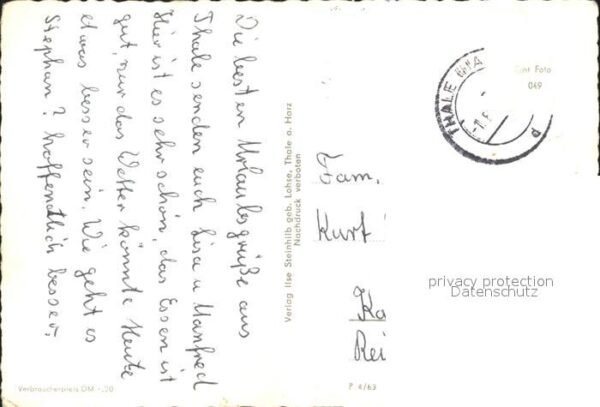 Die besten Urlaubsgrüße aus
Thale senden euch Lisa u Manfred
Hier ist es sehr schön, das Essen ist
gut, nur das Wetter könnte Heute
etwas besser sein. Wie geht es
Stephan? hoffentlich besser.
Verbraucherpreis DM -,20
Verlag Ilse Steinhilb geb. Lohse, Thale a. Harz
Nachdruck verboten
P 4/63
THALE
Foto
049
Fam.
Kurt
Ka
Rei
privacy protection
Datenschutz